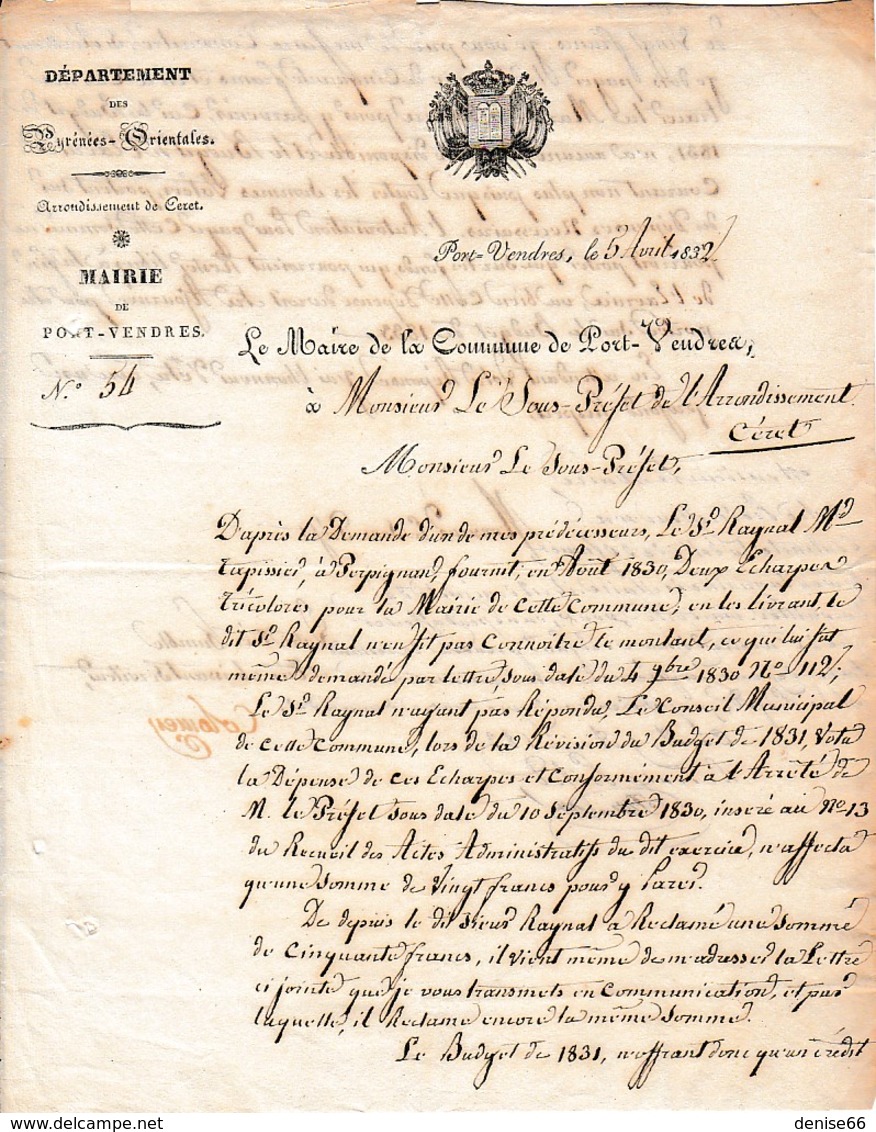 DÉPARTEMENT
DES
Pyrénées-Orientales.
Arrondissement de Ceret.
MAIRIE
DE
PORT-VENDRES.
N.º 54
Port-Vendres, le 5 Avril 1832
Le Maire de la Commune de Port-Vendres,
à Monsieur Le Sous-Préfet de l'Arrondissement
Céret
Monsieur Le Sous-Préfet,
D'après la Demande d'un de mes prédécesseurs, Le Sr. Raynal Md
Tapissier, à Perpignan, fournit, en Août 1830, Deux Echarpes
tricolores pour la Mairie de cette Commune, en les livrant, le
dit Sr. Raynal n'en fit pas connoître le montant, ce qui lui fut
même demandé par lettre sous date du 4 9bre 1830 No. 112;
Le Sr. Raynal n'ayant pas Répondu, Le Conseil Municipal
de cette commune, lors de la Révision du Budget de 1831, Vota
la Dépense de ces Echarpes et conformément à l'Arrêté de
M. le Préfet sous date du 10 Septembre 1830, inseré au No. 13
du Recueil des Actes Administratifs du dit exercice, n'affecta
qu'une somme de Vingt francs pour y Parer.
De depuis le dit Sieur Raynal a Réclamé une somme
de cinquante francs, il vient même de m'adresser la Lettre
ci jointe que je vous transmets en communication, et par
laquelle, il Réclame encore la même somme.
Le Budget de 1831, n'offrant donc qu'un crédit
denise66